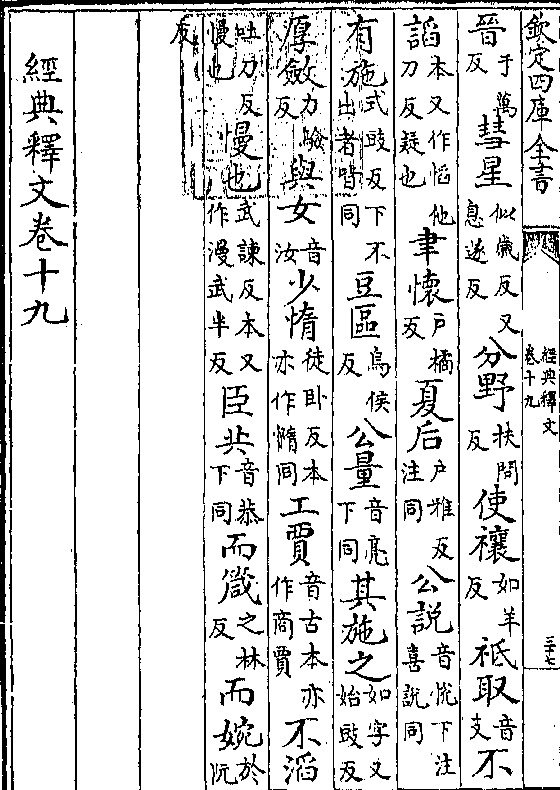 欽定四庫全書
經典釋文
卷十九
三十七
晉于萬反彗星似歲反又息遂反分野扶問反使禳如羊反祗取音支不
謟本又作慆他刀反疑也聿懷戶橘反夏后戶雅反注同公說音悅下注喜說同
有施式豉反下不出者皆同豆區烏侯反公量音亮下同其施之如字又始豉反
厚斂力驗反與女音汝少惰徒卧反本亦作憜同工賈音古本亦作商賈不滔
吐刀反慢也慢也武諫反本又作漫武半反臣共音恭下同而箴之林反而婉於阮
反
經典釋文卷十九